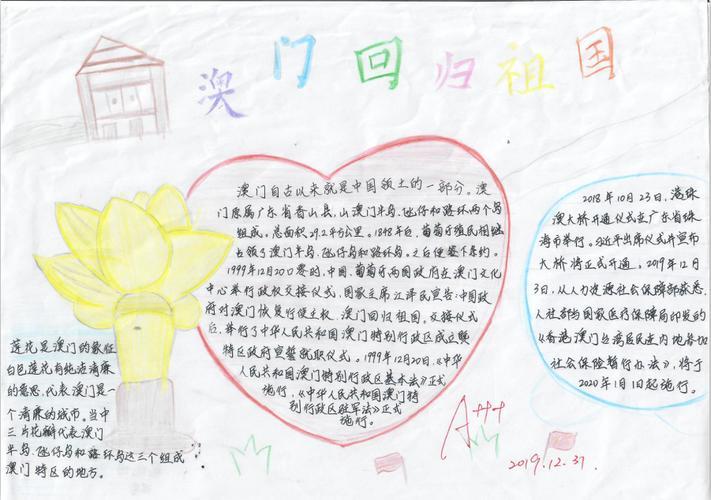 澳门回归祖国
澳门自古以来就是中国领土的一部分。澳
门原属广东省香山县,由澳门半岛、氹仔和路环两个岛
组成。总面积29.2平方公里。1848年后,葡萄牙殖民相继
占领了澳门半岛、氹仔岛和路环岛。之后便签下条约。
1999年12月20日零时,中国、葡萄牙两国政府在澳门文化
中心举行政权交接仪式,国家主席江泽民宣告:中国政
府对澳门恢复行使主权,澳门回归祖国。交接仪式
后,举行了中华人民共和国澳门特别行政区成立暨
特区政府宣誓就职仪式。1999年12月20日,《中华
人民共和国澳门特别行政区基本法》正式
施行,《中华人民共和国澳门特
别行政区驻军法》正式
施行。
2018年10月23日,港珠
澳大桥开通仪式在广东省珠
海市举行。习近平出席仪式并宣布
大桥将正式开通。2019年12月
3日,从人力资源社会保障部获悉,
人社部和国家医疗保障局印发的
《香港澳门台湾居民在内地参加
社会保险暂行办法》,将于
2020年1月1日起施行。
莲花是澳门的象征
白色莲花有纯洁清廉
的意思,代表澳门是一
个清廉的城市,当中
三片花瓣代表澳门
半岛、氹仔岛和路环岛这三个组成
澳门特区的地方。
A+++
2019.12.31.